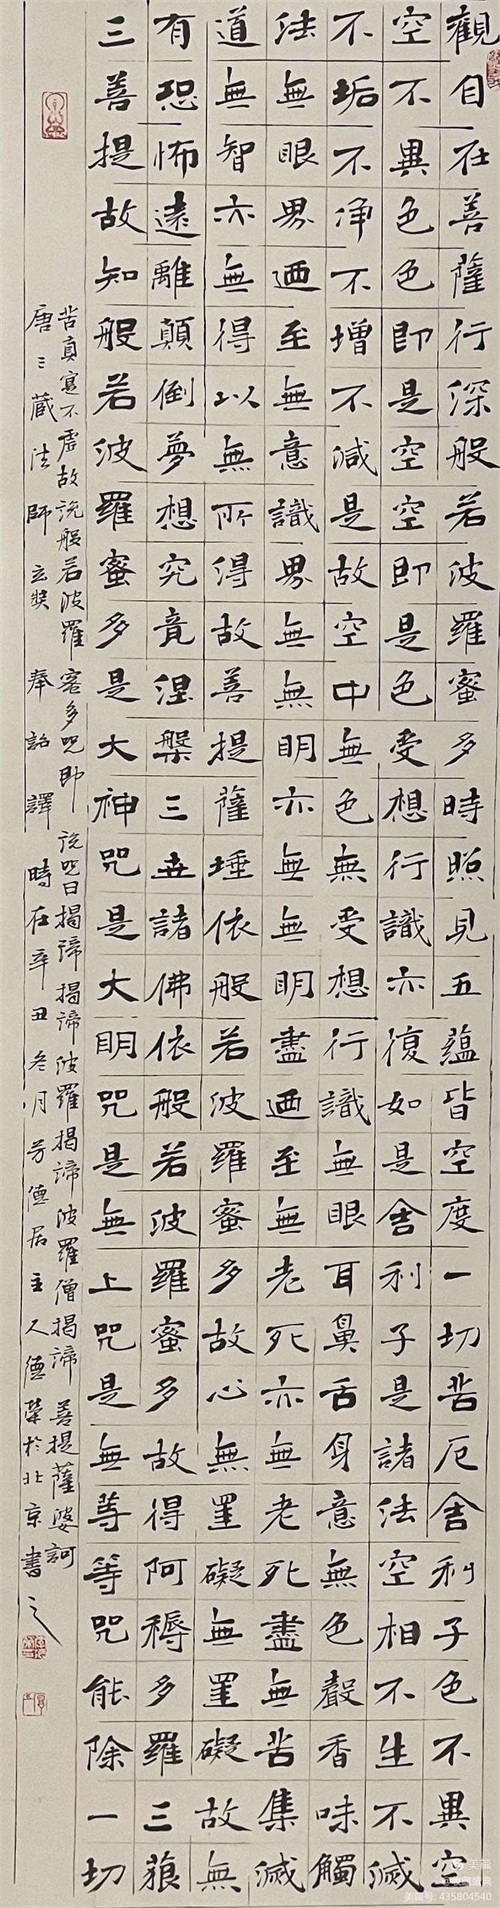 觀自在菩薩行深般若波羅蜜多時照見五蘊皆空度一切苦厄舍利子色不異空
空不異色色即是空空即是色受想行識亦復如是舍利子是諸法空相不生不滅
不垢不净不增不減是故空中無色無受想行識無眼耳鼻舌身意無色聲香味觸
法無眼界迺至無意識界無無明亦無無明盡迺至無老死亦無老死盡無苦集滅
道無智亦無得以無所得故菩提薩埵依般若波羅蜜多故心無罣礙無罣礙故無
有恐怖遠離顛倒夢想究竟涅槃三世諸佛依般若波羅蜜多故得阿耨多羅三藐
三菩提故知般若波羅蜜多是大神咒是大明咒是無上咒是無等等咒能除一切
苦真寔不虛故說般若波羅蜜多咒即說咒曰揭諦揭諦波羅揭諦波羅僧揭諦菩提薩婆訶
唐三藏法師玄奘奉詔譯 時在辛丑叁月芳德居主人德榮於北京書之
美篇
美篇号: 435804540